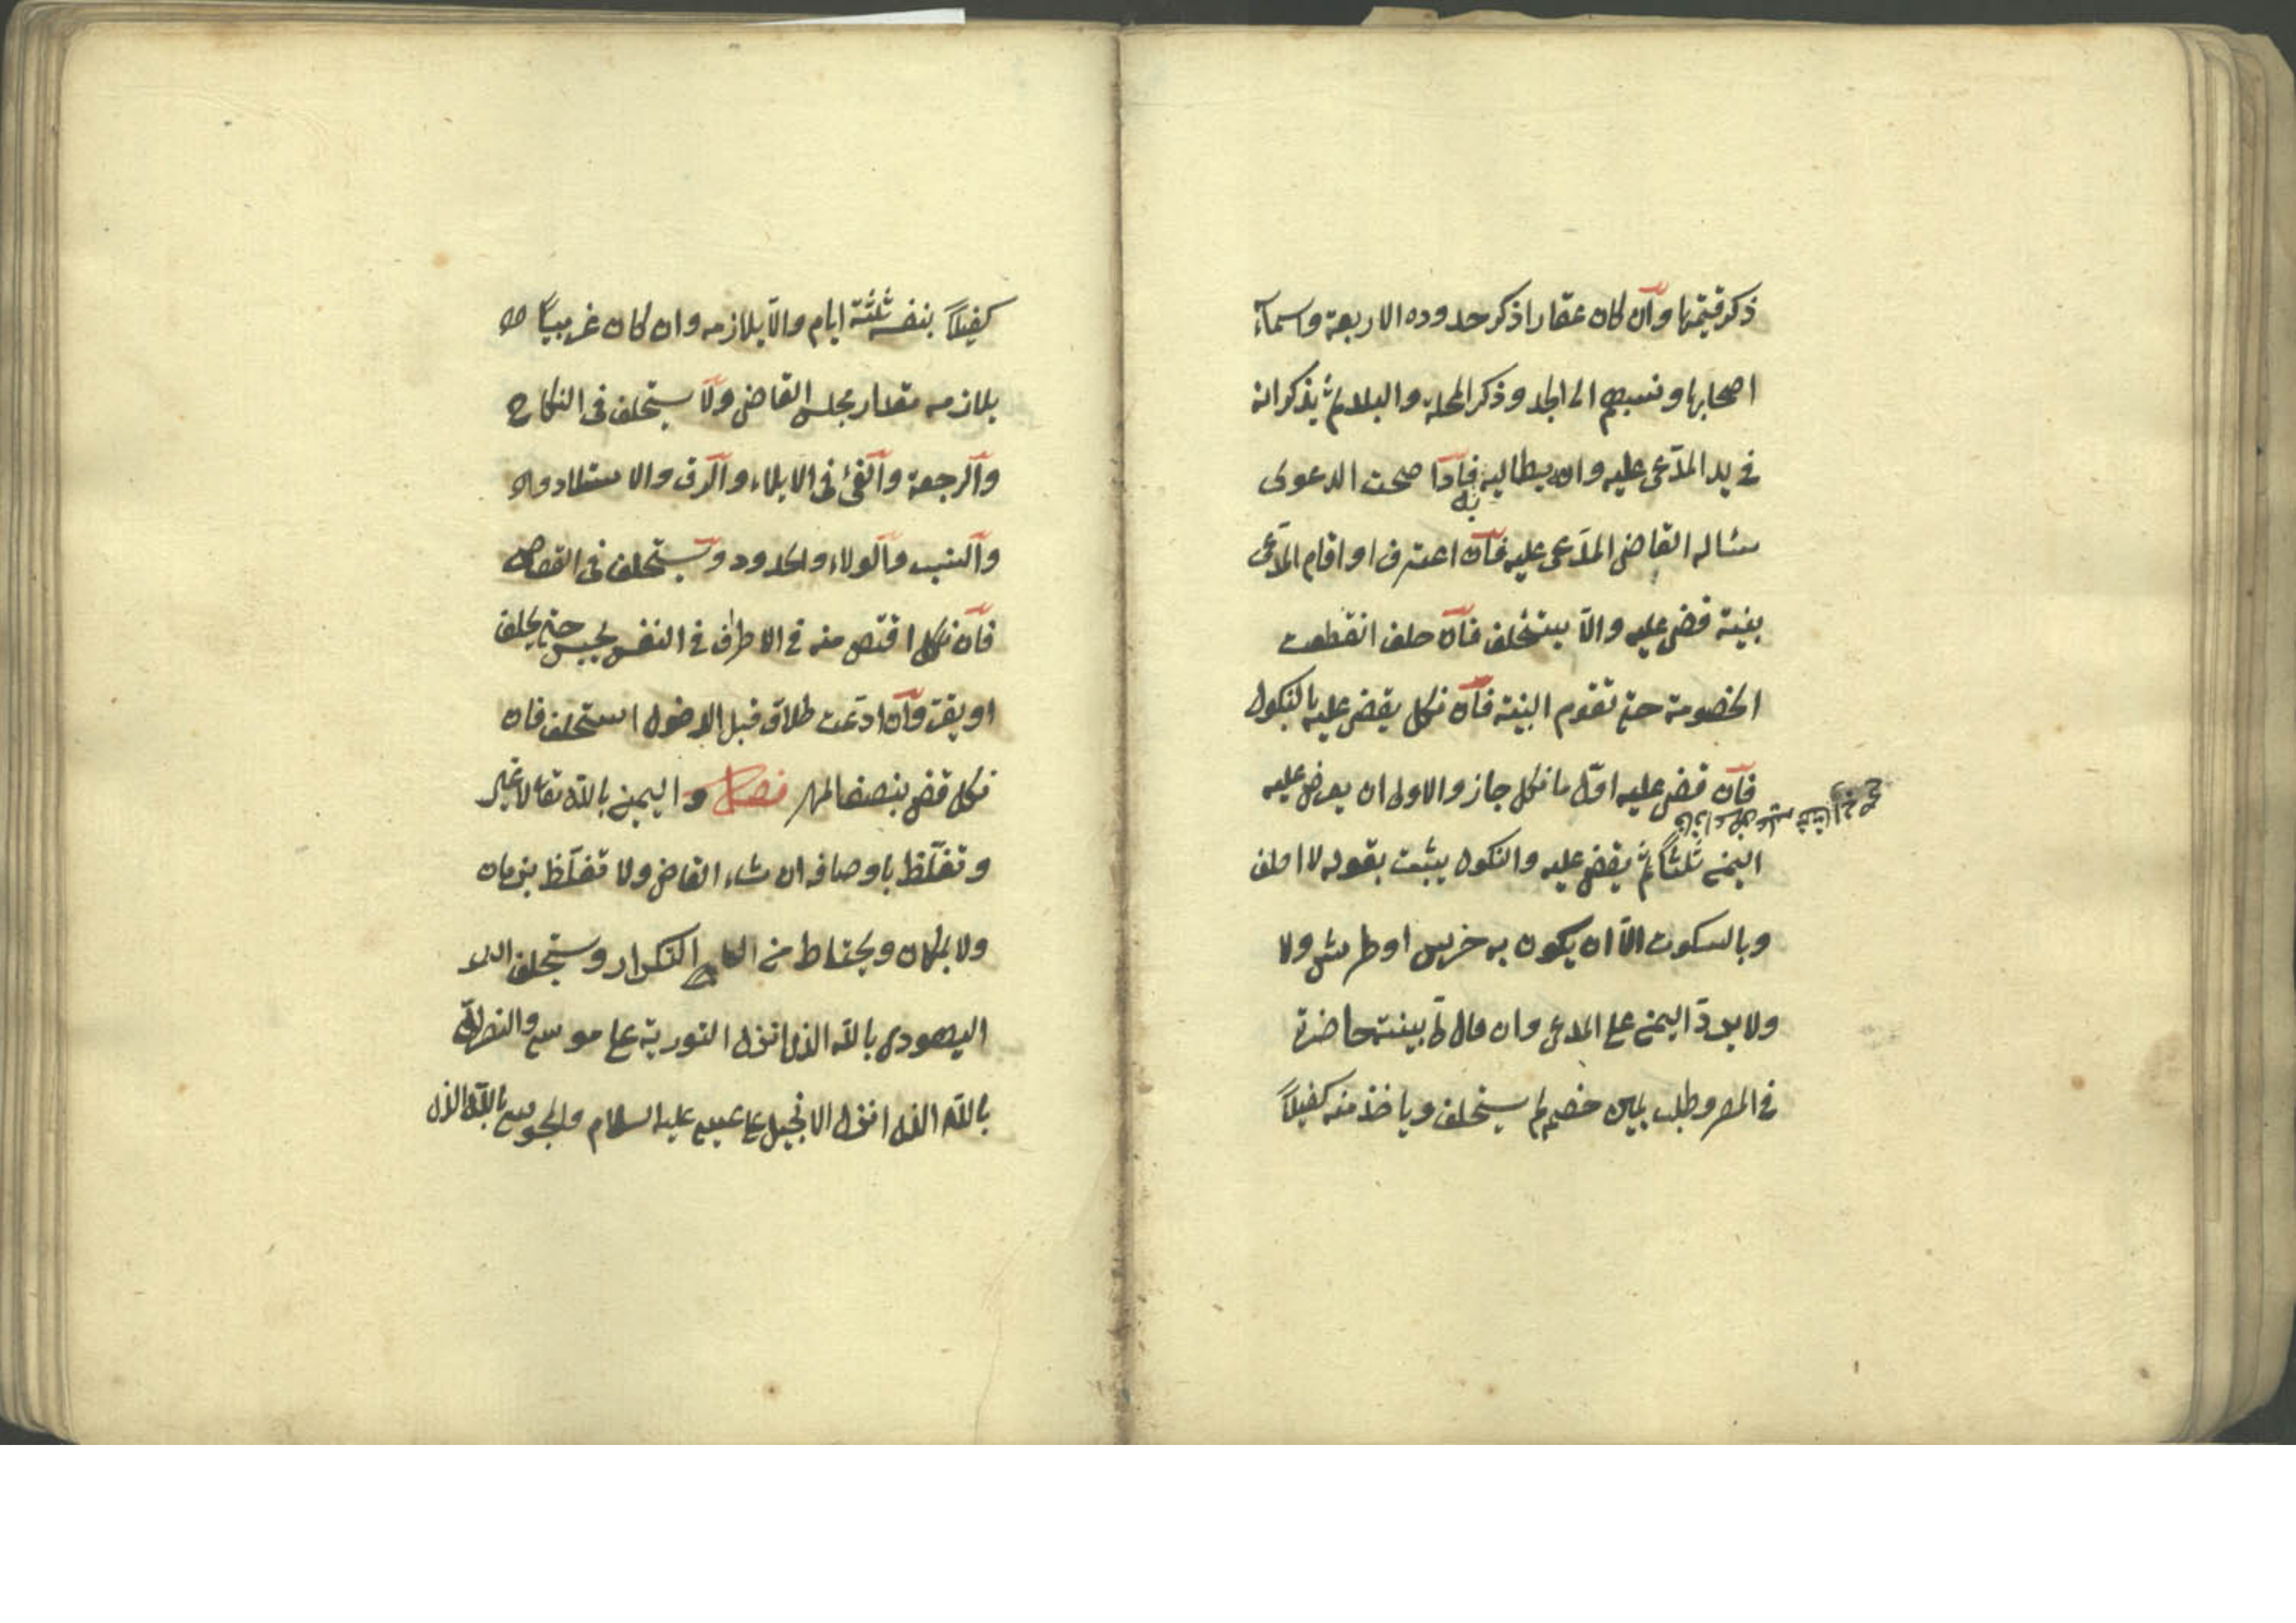 ذكر قيمتها وان كان عقارا ذكر حدوده الاربعة واسماء
اصحابها ونسبهم الى الجد وذكر المحلة والبلد ثم يذكر انه
في يد المدّعى عليه وانه يطالبه به فاذا صحت الدعوى
سئاله القاضى المدّعى عليه فان اعترف او اقام المدّعى
بينة قضى عليه والاّ يستحلف فان حلف انقطعت
الخصومة حتى تقوم البينة فان نكل يقضى عليه بالنكول
فان قضى عليه اوّل ما نكل جاز والاولى ان يعرض عليه
اليمين ثلثاً ثم يقضى عليه والنكول يثبت بقوله لا احلف
وبالسكوت الاّ ان يكون به خرس او طرش ولا
ولا يردّ اليمين على المدعى وان قال لى بينة حاضرة
في المصر وطلب يمين خصمه لم يستحلف وياخذ منه كفيلاً
كفيلاً بنفسه ثلثة ايام والاّ يلازمه وان كان غريباً
يلازمه مقدار مجلس القاضى ولا يستحلف فى النكاح
والرجعة والفئ فى الايلاء والرق والاستيلاد
والنسب والولاء والحدود ويستحلف فى القصاص
فان نكل اقتص منه فى الاطراف فى النفس يحبس حتى يحلف
او يقرّ وان ادّعت طلاق قبل الدخول استحلف فان
نكل قضى بنصف المهر فصل واليمين بالله تعالى لا غير
وتغلّظ باوصافه ان شاء القاضى ولا تغلّظ بزمان
ولا بمكان ويحتاط من التكرار ويستحلف
اليهودى بالله الذى انزل التورية على موسى والنصرانى
بالله الذى انزل الانجيل على عيسى عليه السلام والمجوسى بالله الذى